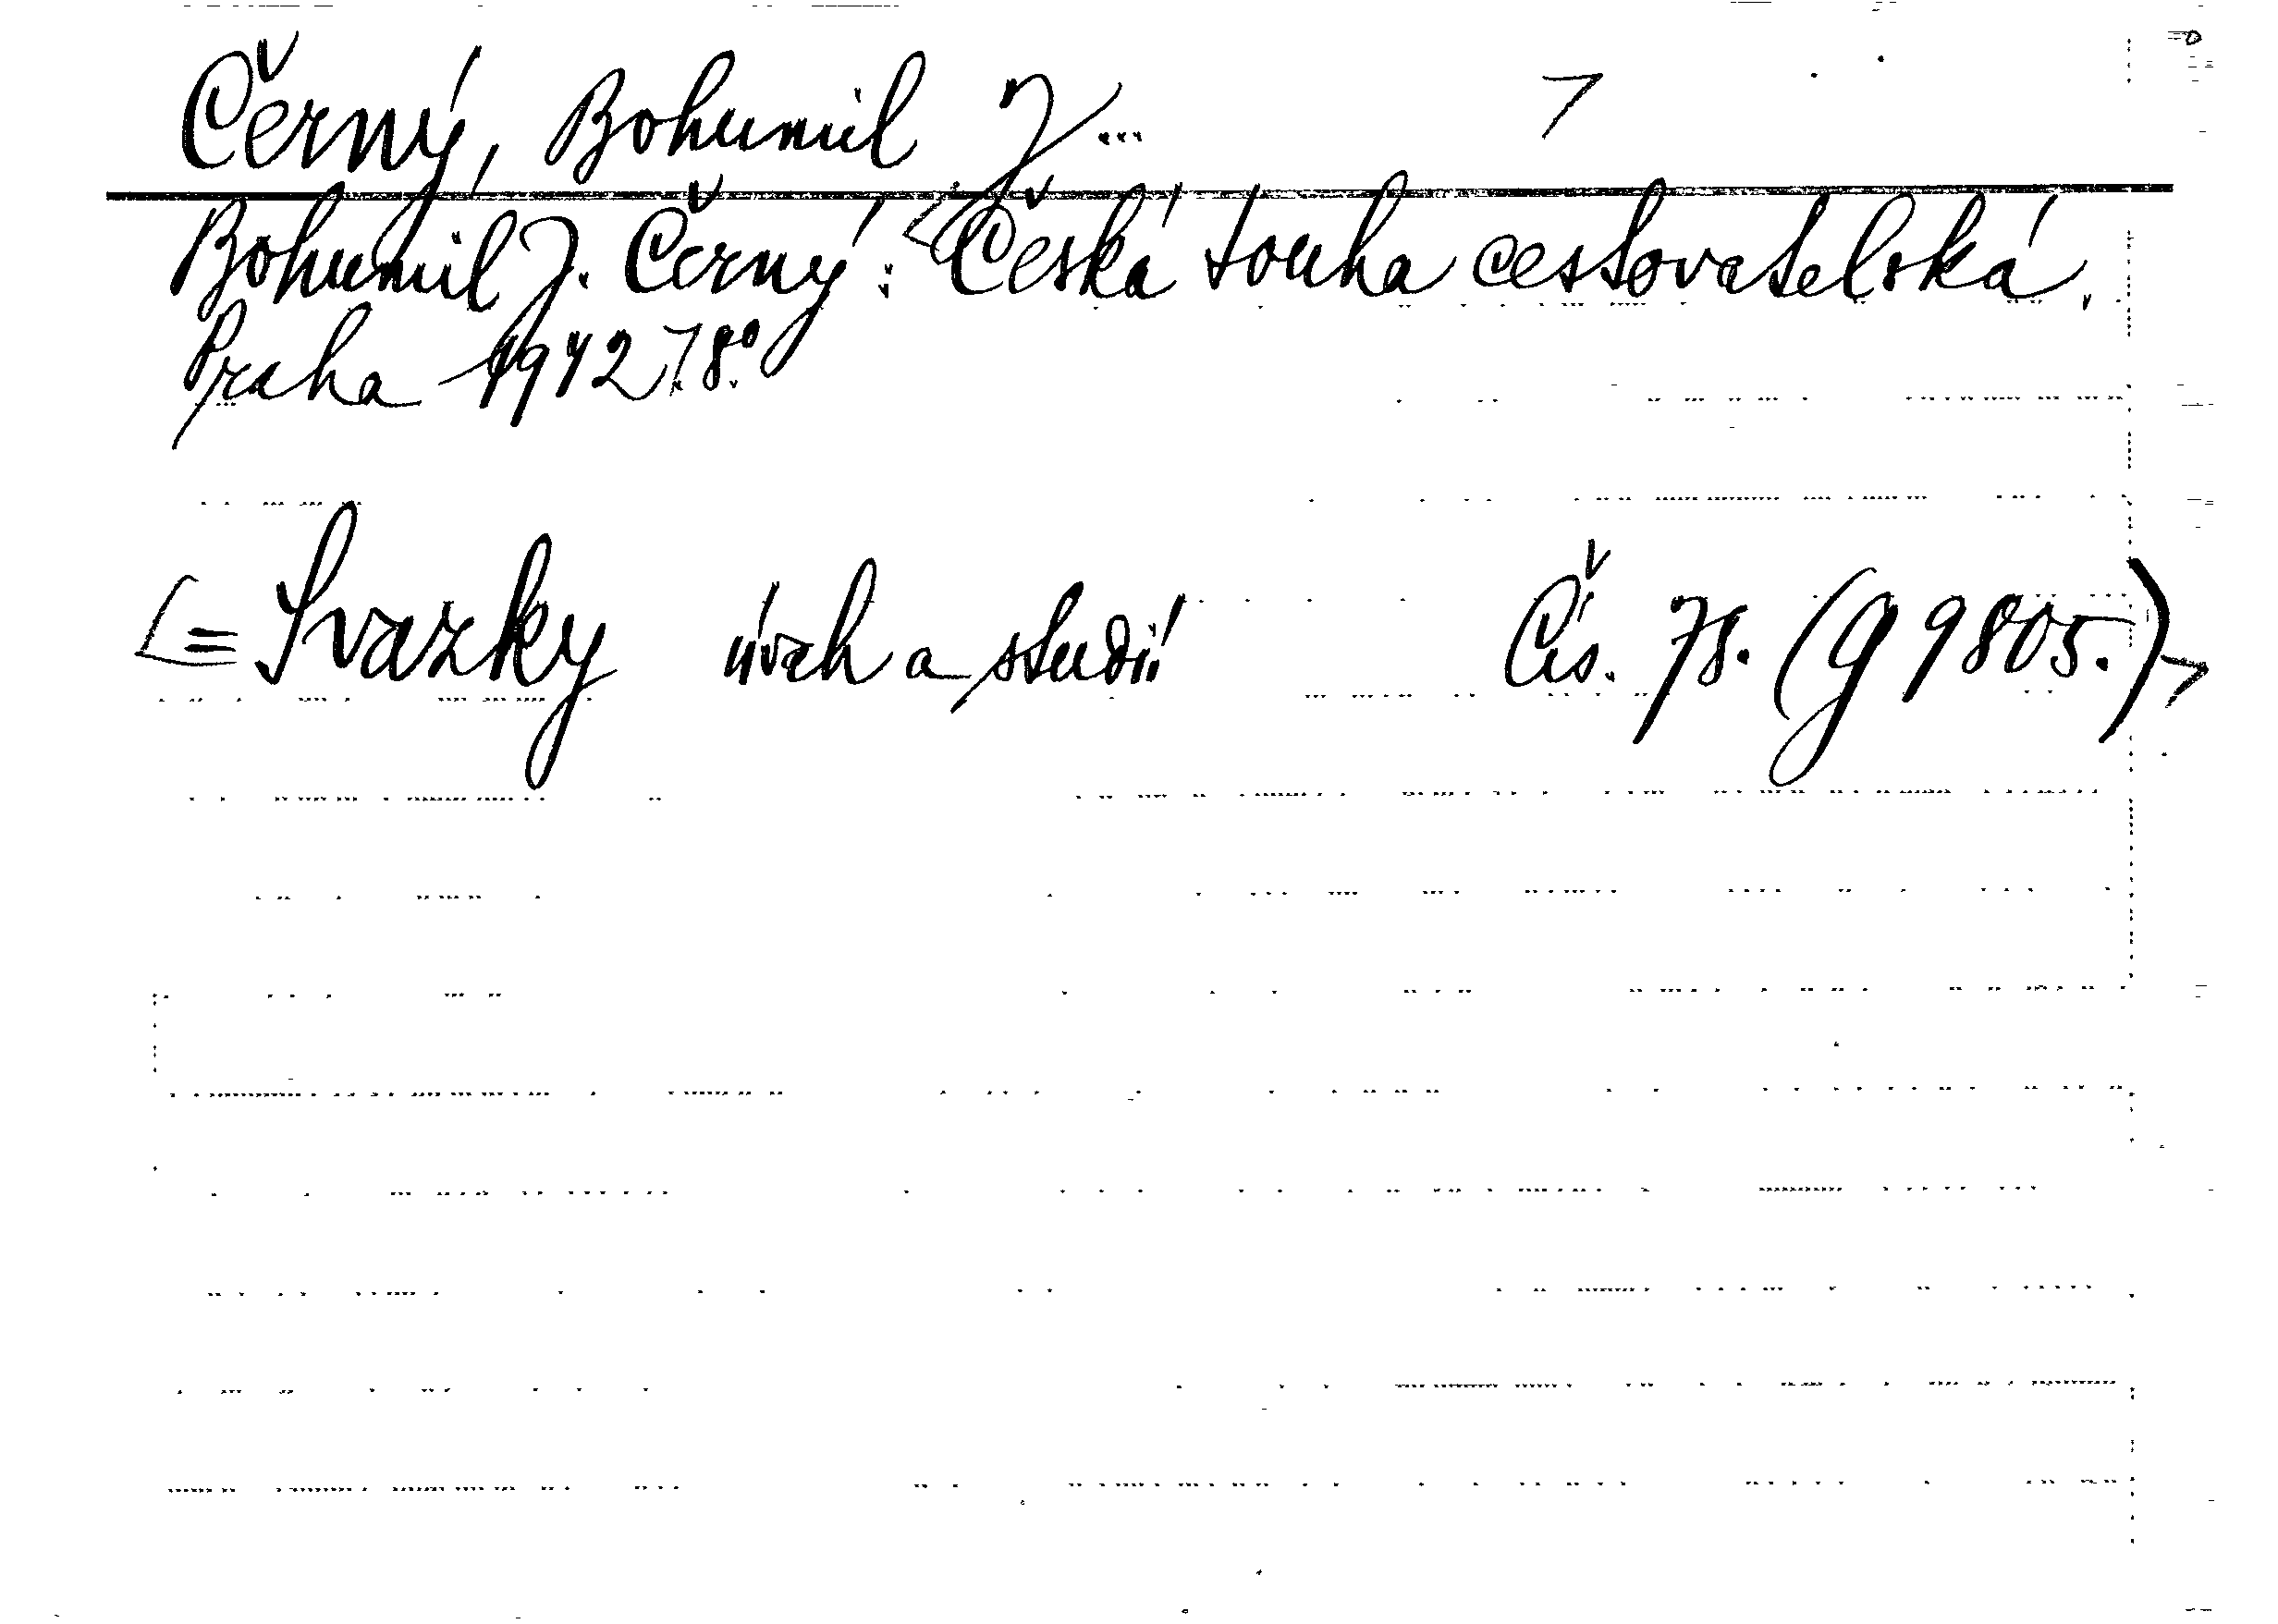 Černý, Bohumil J... >
Bohumil J. Černý: <Česká touha cestovatelská.
Praha 1942.> 8°.
<= Svazky úvah a studií Čís. 78. (G 9805.)>